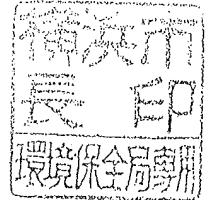 横浜市
長印
環境保全局専用